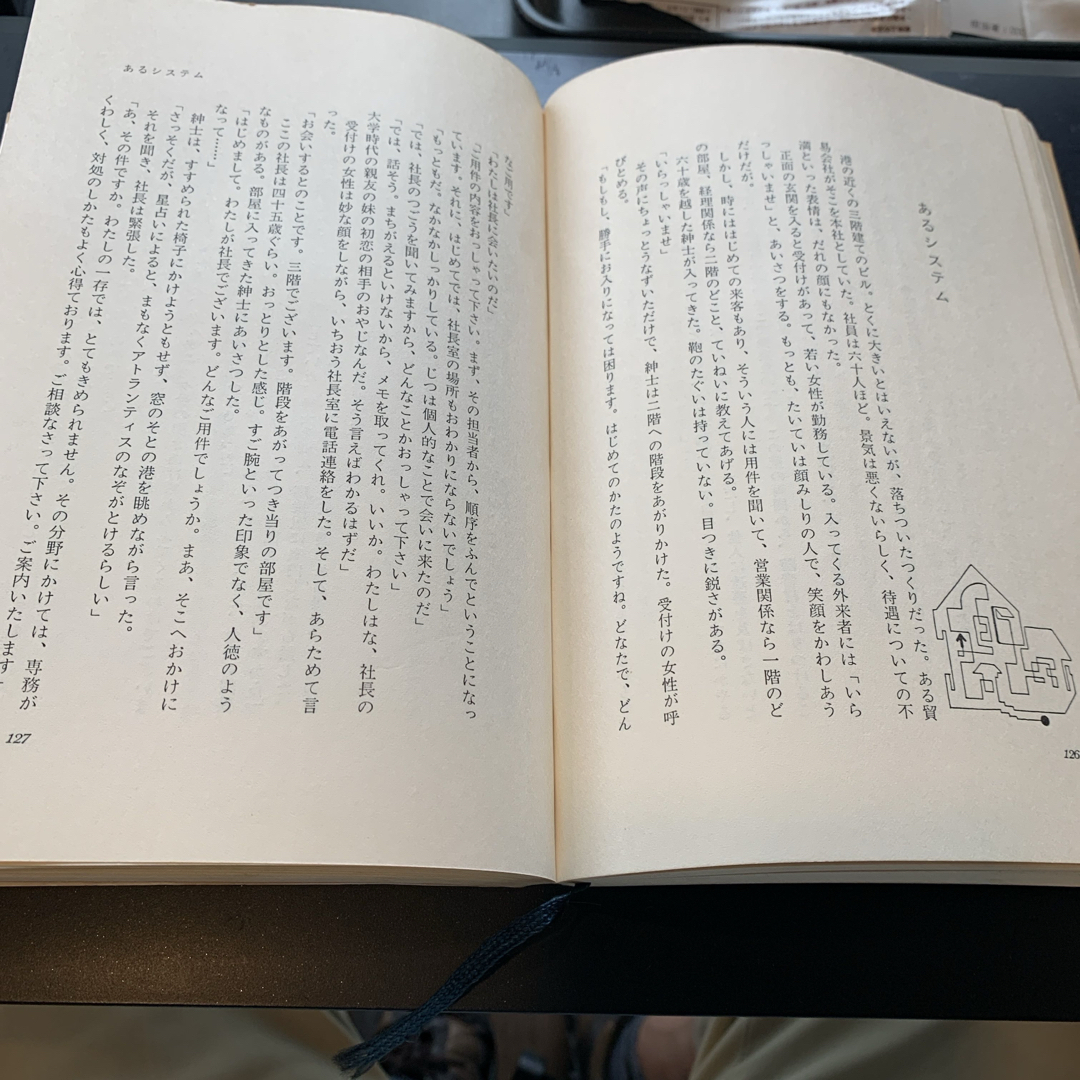 あるシステム
港の近くの三階建てのビル。とくに大きいとはいえないが、落ちついたつくりだった。ある貿
易会社がそこを本社としていた。社員は六十人ほど。景気は悪くないらしく、待遇についての不
満といった表情は、だれの顔にもなかった。
正面の玄関を入ると受付けがあって、若い女性が勤務している。入ってくる外来者には「いら
っしゃいませ」と、あいさつをする。もっとも、たいていは顔みしりの人で、笑顔をかわしあう
だけだが。
しかし、時にははじめての来客もあり、そういう人には用件を聞いて、営業関係なら一階のど
の部屋、経理関係なら二階のどこと、ていねいに教えてあげる。
六十歳を越した紳士が入ってきた。鞄のたぐいは持っていない。目つきに鋭さがある。
「いらっしゃいませ」
その声にちょっとうなずいただけで、紳士は二階への階段をあがりかけた。受付けの女性が呼
びとめる。
「もしもし、勝手にお入りになっては困ります。はじめてのかたのようですね。どなたで、どん
126
あるシステム
なご用です」
「わたしは社長に会いたいのだ」
「ご用件の内容をおっしゃって下さい。まず、その担当者から、順序をふんでということになっ
ています。それに、はじめてでは、社長室の場所もおわかりにならないでしょう」
「もっともだ。なかなかしっかりしている。じつは個人的なことで会いに来たのだ」
「では、社長のつごうを聞いてみますから、どんなことかおっしゃって下さい」
「では、話そう。まちがえるといけないから、メモを取ってくれ。いいか。わたしはな、社長の
大学時代の親友の妹の初恋の相手のおやじなんだ。そう言えばわかるはずだ」
受付けの女性は妙な顔をしながら、いちおう社長室に電話連絡をした。そして、あらためて言
った。
「お会いするとのことです。三階でございます。階段をあがってつき当りの部屋です」
ここの社長は四十五歳ぐらい。おっとりとした感じ。すご腕といった印象でなく、人徳のよう
なものがある。部屋に入ってきた紳士にあいさつした。
「はじめまして。わたしが社長でございます。どんなご用件でしょうか。まあ、そこへおかけに
なって……」
紳士は、すすめられた椅子にかけようともせず、窓のそとの港を眺めながら言った。
「さっそくだが、星占いによると、まもなくアトランティスのなぞがとけるらしい」
それを聞き、社長は緊張した。
「あ、その件ですか。わたしの一存では、とてもきめられません。その分野にかけては、専務が
くわしく、対処のしかたもよく心得ております。ご相談なさって下さい。ご案内いたします」
127